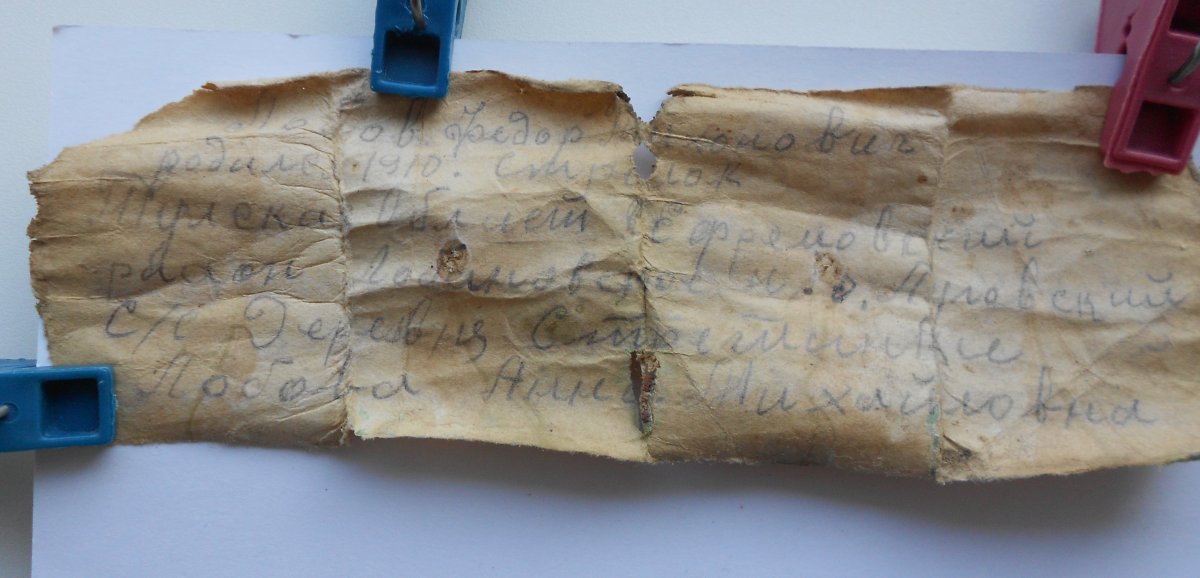 Лобов Федор
родилс 1910. стрелок
Тулска Область Ефремовский
район п. о. Луговский
С/С Деревня
Лобова Анна Михайловна